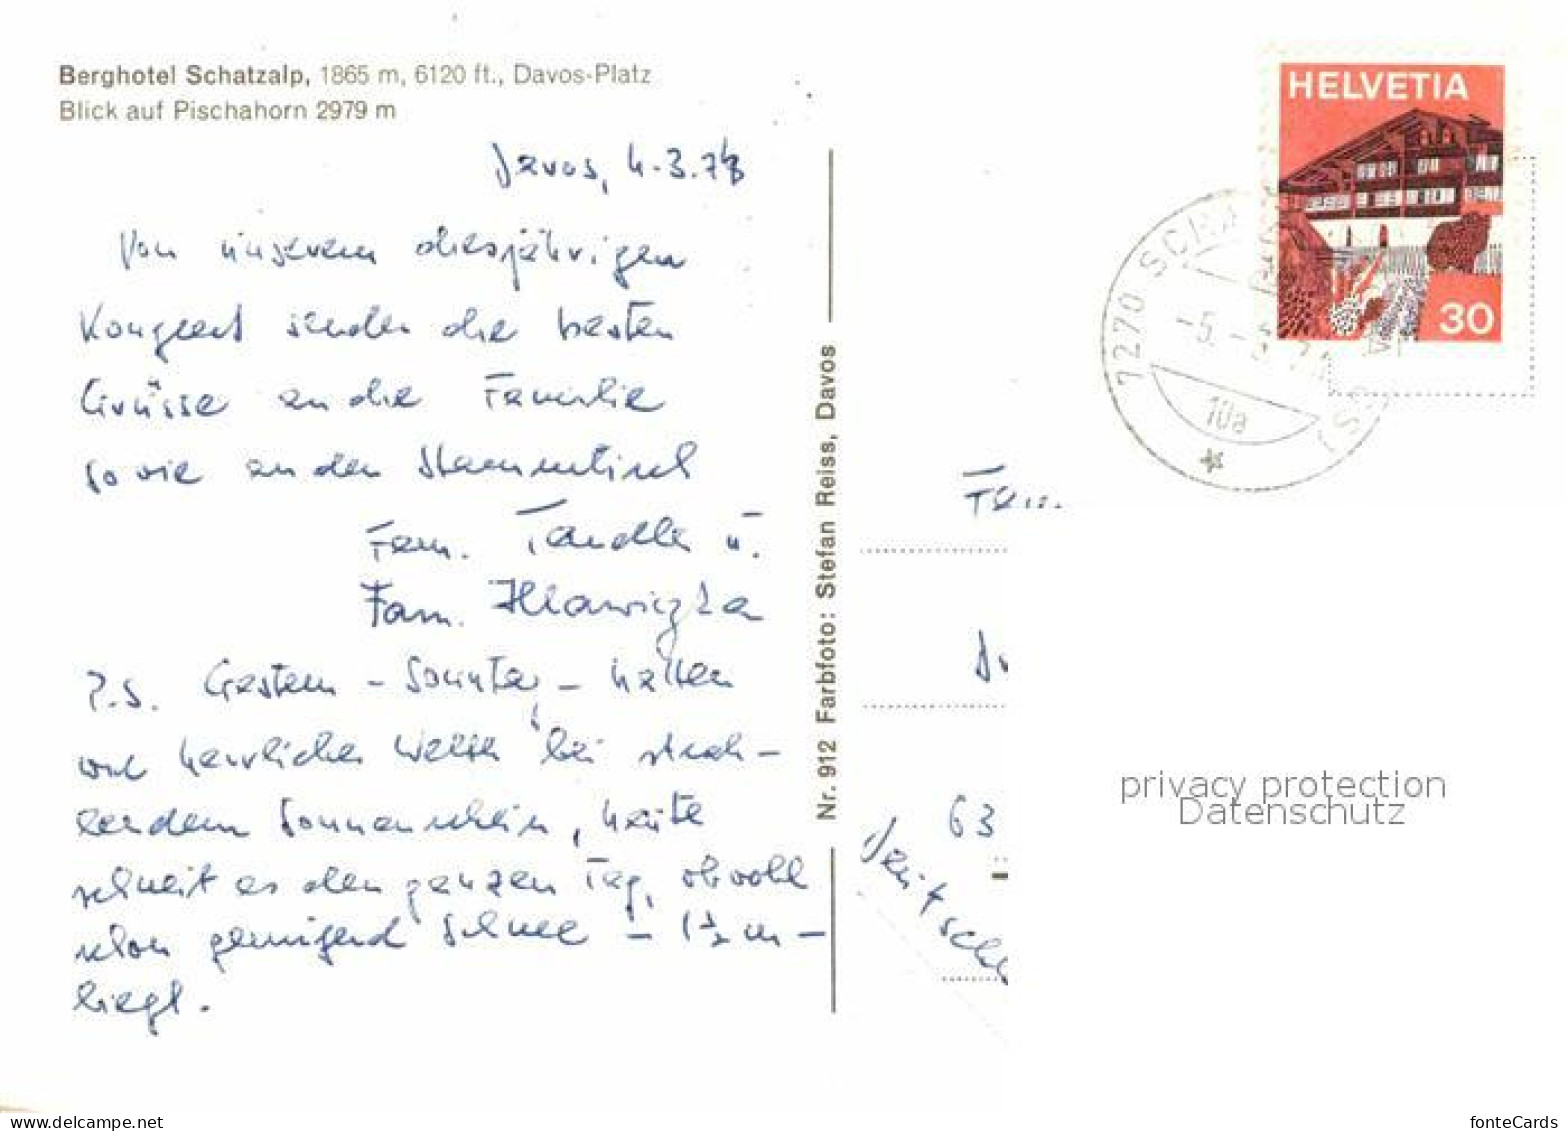 Berghotel Schatzalp, 1865 m, 6120 ft., Davos-Platz
Blick auf Pischahorn 2979 m
Davos, 4.3.78
Von unserem diesjährigen
Kongreß senden die besten
Grüsse an die Familie
sowie an den Stammtisch
Fam. Tandler u.
Fam. Hlawiczka
P.S. Gestern - Sonntag - hatten
wir herrliches Wetter bei strah-
lendem Sonnenschein, heute
schneit es den ganzen Tag, obwohl
schon genügend Schnee - 1 1/2 m -
liegt.
Nr. 912 Farbfoto: Stefan Reiss, Davos
HELVETIA
30
7270
-5.
10a
Fam.
63
privacy protection
Datenschutz
www.delcampe.net
fonteCards